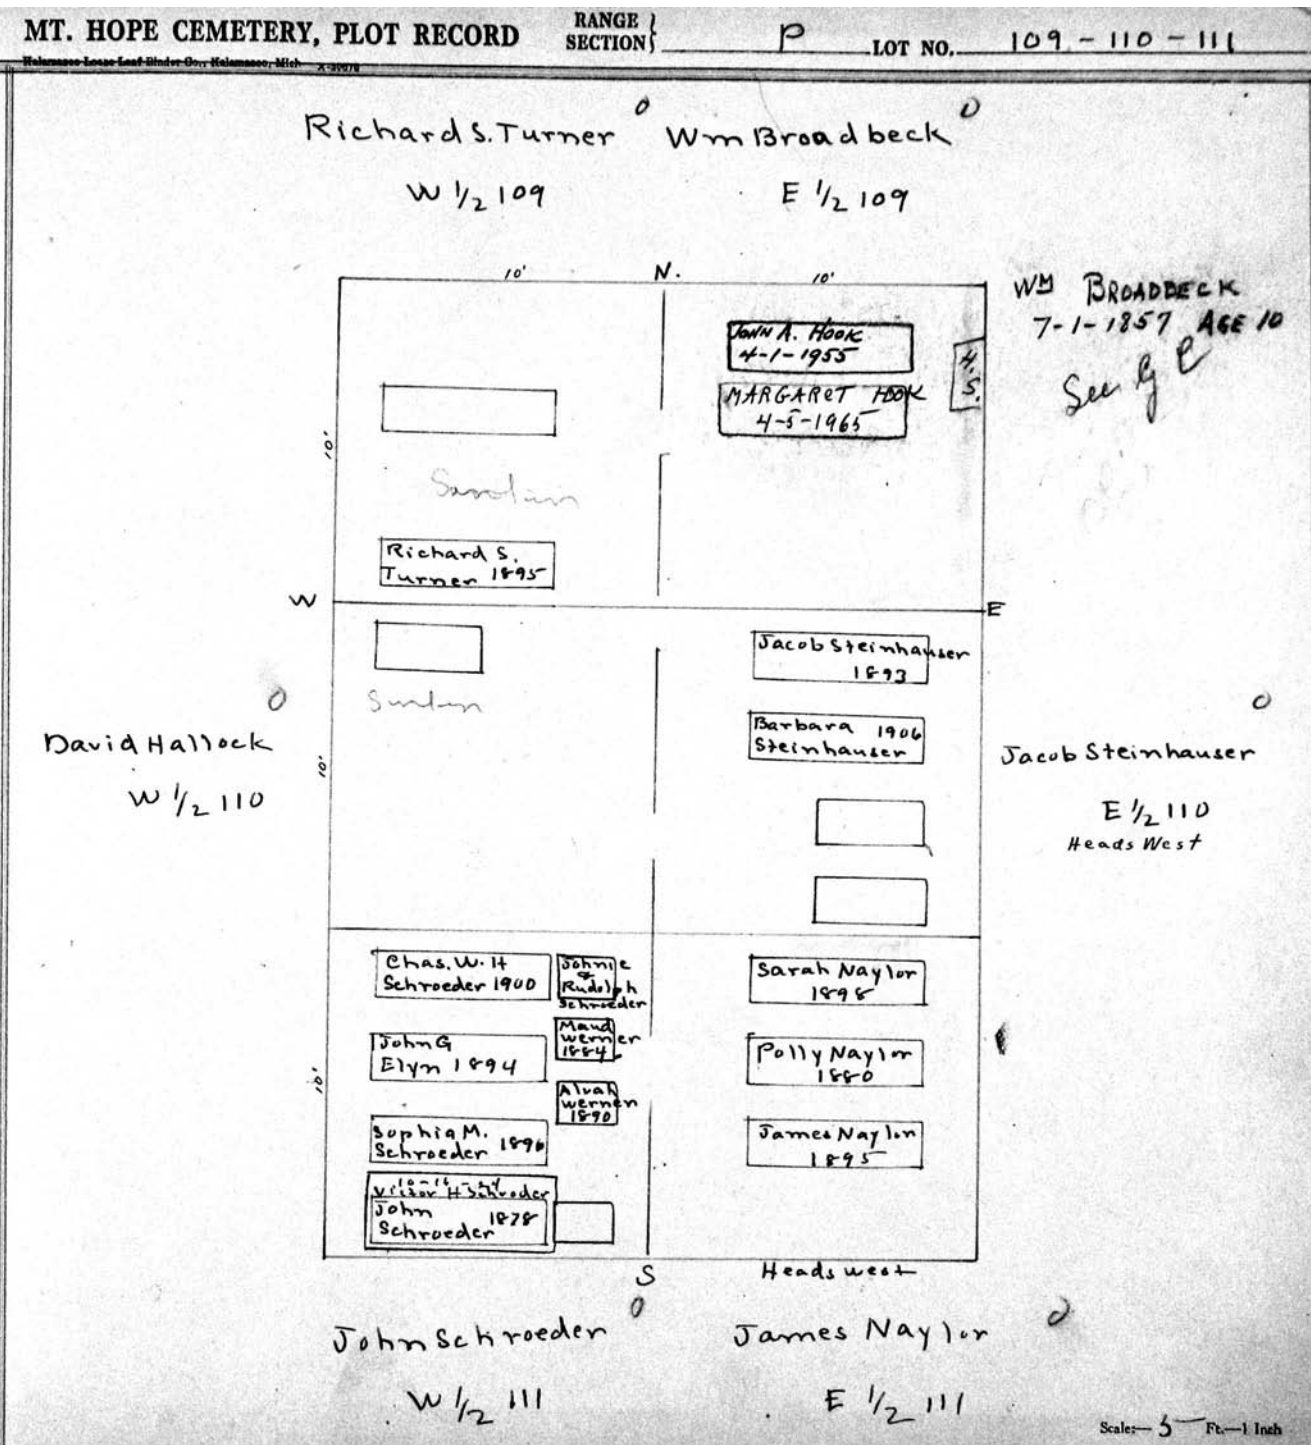 MT. HOPE CEMETERY, PLOT RECORD
RANGE
SECTION
P
LOT NO. 109 - 110 - 111
Kalamazoo Loose Leaf Binder Co., Kalamazoo, Mich
Richard S. Turner
W 1/2 109
Wm Broadbeck
E 1/2 109
10'
N.
10'
WM BROADBECK
7-1-1857 AGE 10
See G
JOHN A. HOOK
4-1-1955
H.S.
MARGARET HOOK
4-5-1965
10'
Richard S.
Turner 1895
W
E
Jacob Steinhauser
1893
Barbara 1906
Steinhauser
David Hallock
W 1/2 110
10'
Jacob Steinhauser
E 1/2 110
Heads West
Chas. W. H
Schroeder 1900
Johnie
&
Rudolph
Schroeder
Sarah Naylor
1898
John G
Elyn 1894
Maud
Werner
1884
Polly Naylor
1880
10'
Alvah
Werner
1890
Sophia M.
Schroeder 1896
James Naylor
1895
Victor H Schroder
John 1878
Schroeder
S
Heads west
John Schroeder
W 1/2 111
James Naylor
E 1/2 111
Scale:— 5 Ft.—1 Inch